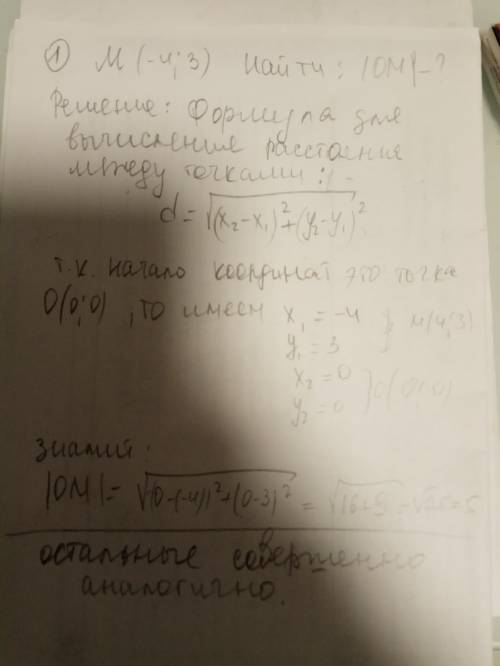 ① M (-4; 3) Найти: |OM| - ?
Решение: Формула для
вычисления расстояния
между точками:
d = √(x₂-x₁)²+(y₂-y₁)²
т.к. начало координат это точка
O(0;0), то имеем x₁ = -4
y₁ = 3 } M(4;3)
x₂ = 0
y₂ = 0 } O(0;0)
|OM| = √(0-(-4))²+(0-3)² = √16+9 = √25 = 5
остальные совершенно
аналогично.